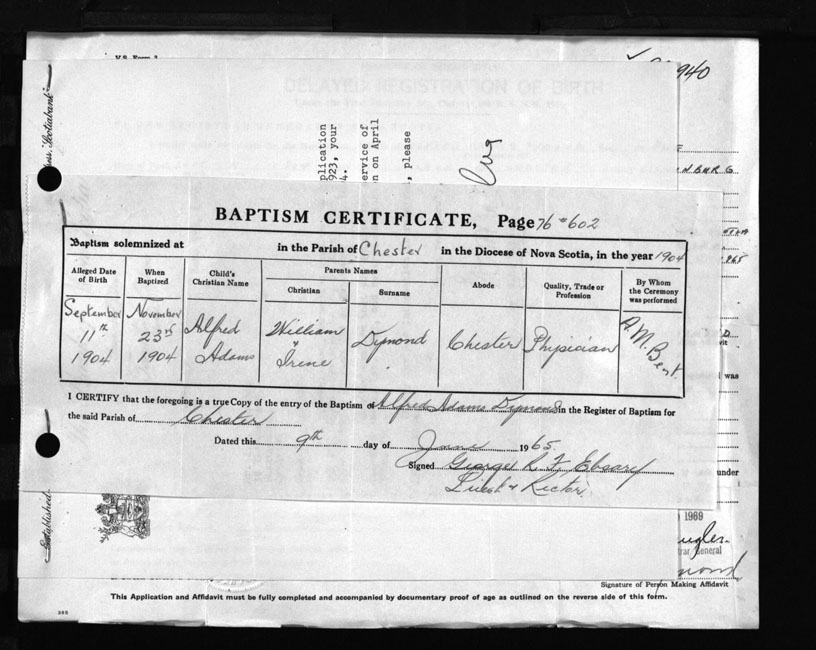 V.S. Form 3
940
DELAYED REGISTRATION OF BIRTH
Scotiabank
plication
923, your
4.
ervice of
n on April
, please
BAPTISM CERTIFICATE, Page 76 #602
Baptism solemnized at in the Parish of Chester in the Diocese of Nova Scotia, in the year 1904
Alleged Date of Birth
When Baptized
Child's Christian Name
Parents Names
Christian
Surname
Abode
Quality, Trade or Profession
By Whom the Ceremony was performed
September 11th 1904
November 23rd 1904
Alfred Adams
William Irene
Dymond "
Chester
Physician
A. M. Bent.
I CERTIFY that the foregoing is a true Copy of the entry of the Baptism of Alfred Adams Dymond in the Register of Baptism for
the said Parish of Chester
Dated this 9th day of June 1965
Signed George R. F. Ebsary
Priest & Rector.
was
under
Established
1969
General
mond
Signature of Person Making Affidavit
This Application and Affidavit must be fully completed and accompanied by documentary proof of age as outlined on the reverse side of this form.